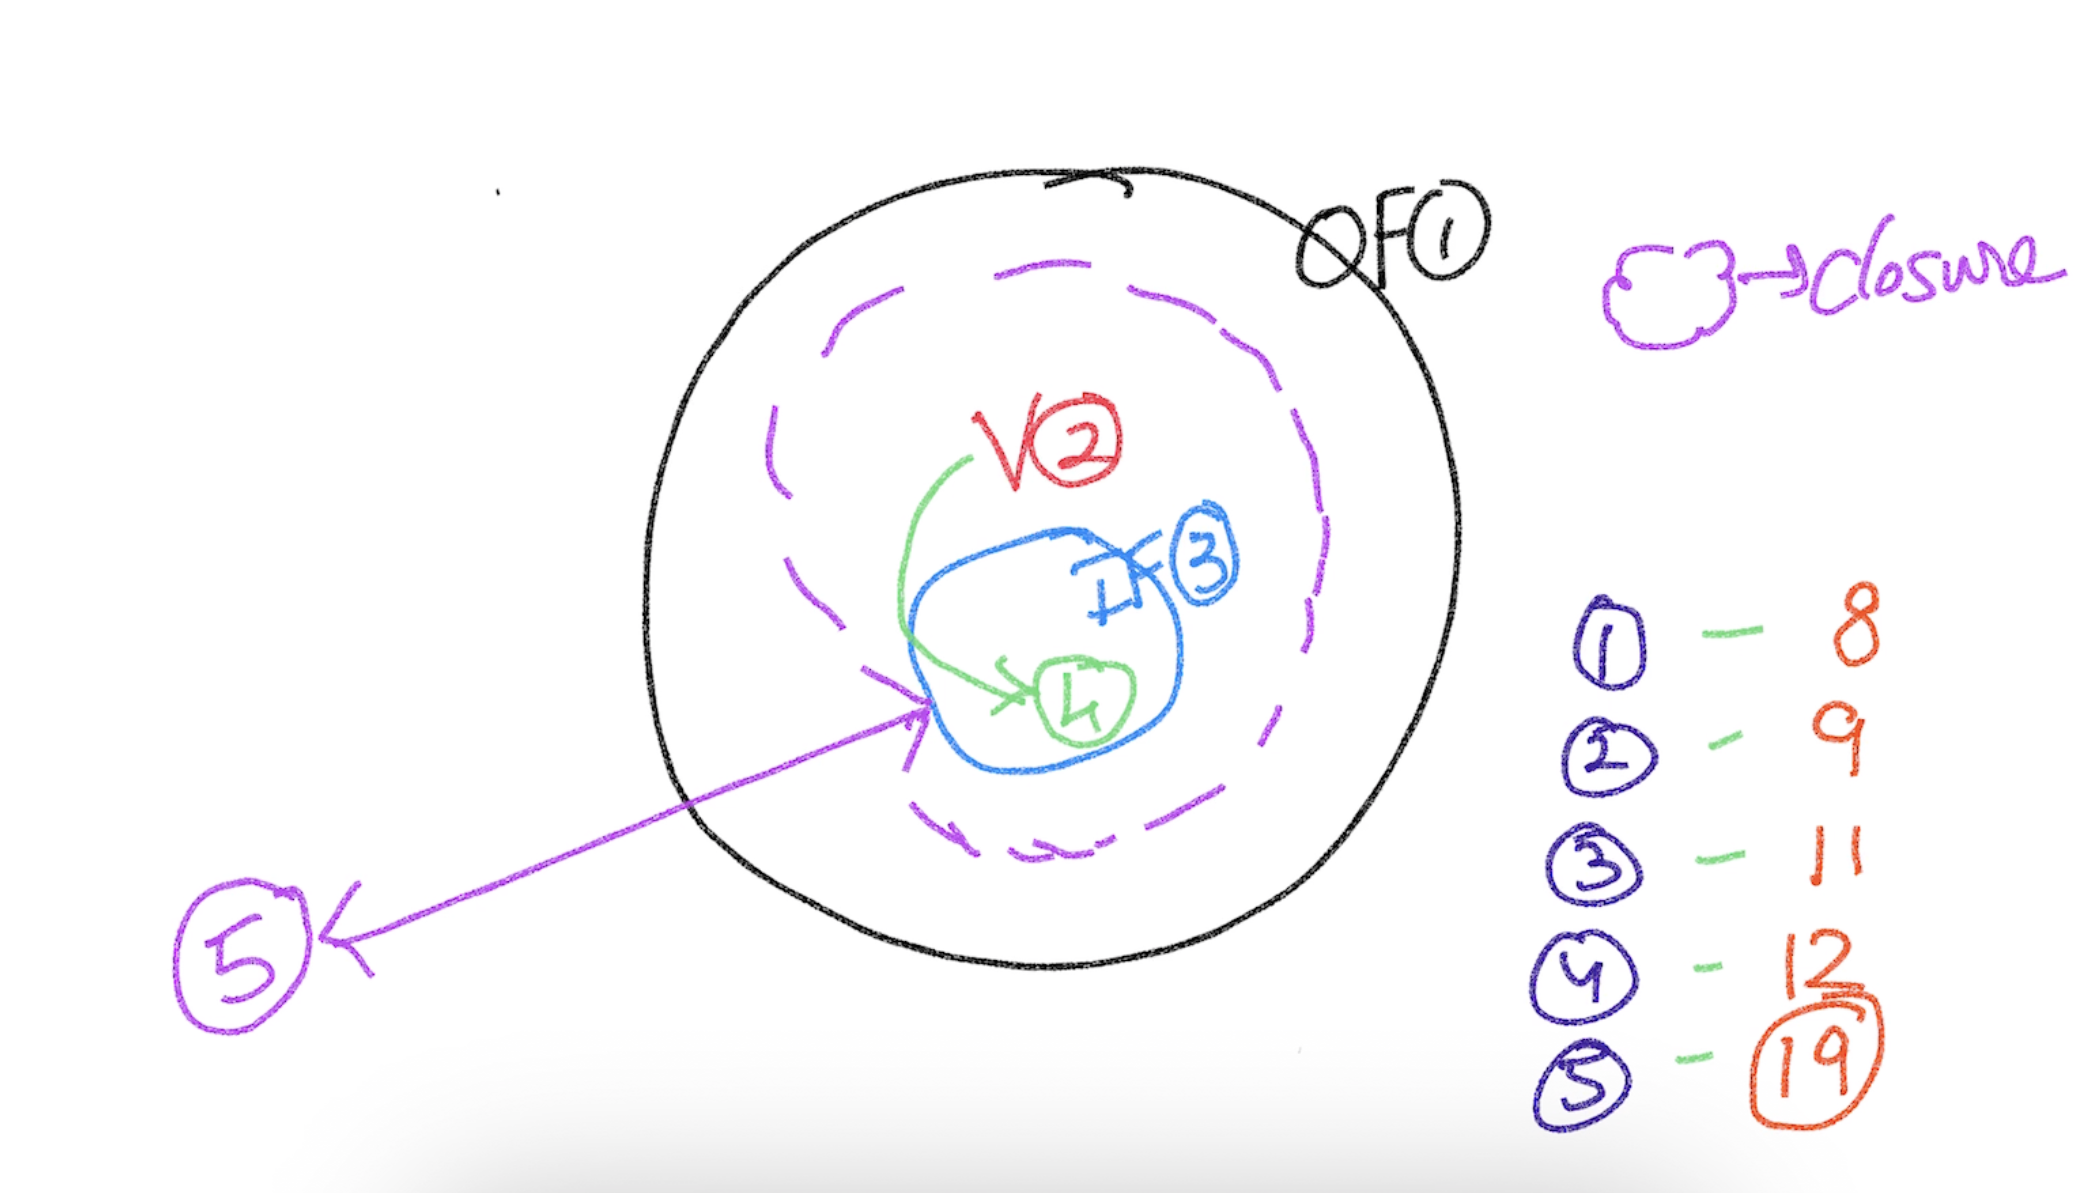 OF ①
→ closure
V ②
IF ③
④
⑤
① – 8
② – 9
③ – 11
④ – 12
⑤ – 19